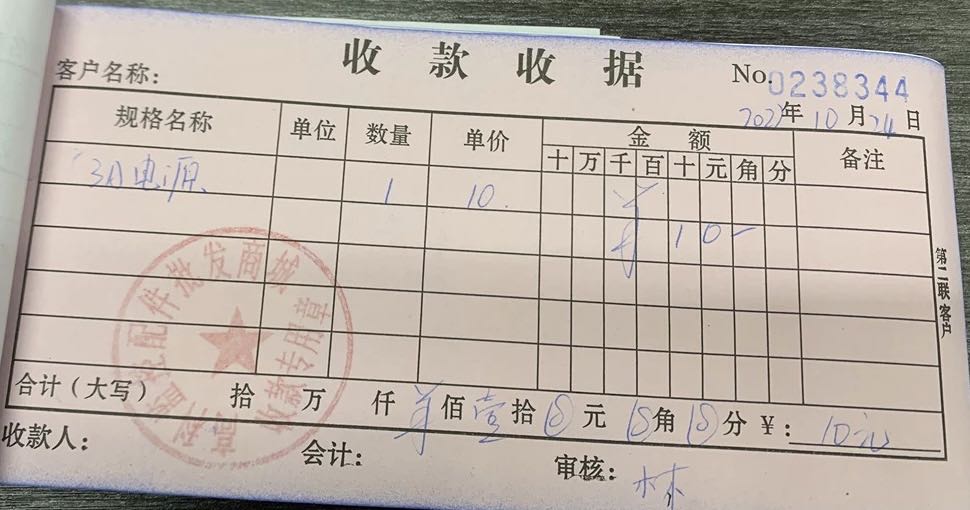 收款收据
No.0238344
客户名称:
202 年10月24日
规格名称 单位 数量 单价 金额 备注
十 万 千 百 十 元 角 分
3A电源 1 10.
¥ 10-
第二联 客户
监控配件批发商城
专用章
合计(大写) 拾 万 仟 ¥ 佰 壹 拾 0 元 0 角 0 分 ¥: 10元
收款人: 会计: 审核: 林